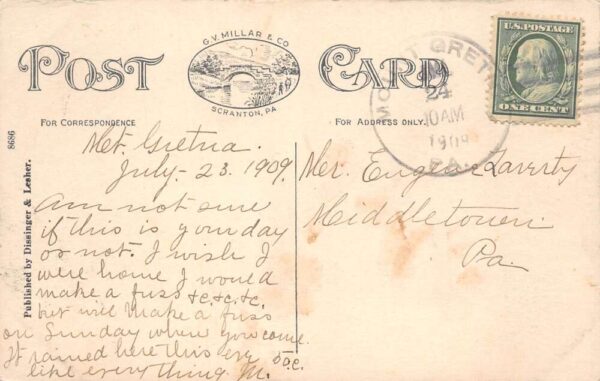 G.V. MILLAR & CO
SCRANTON, PA.
POST CARD
FOR CORRESPONDENCE
FOR ADDRESS ONLY.
8686
Published by Dissinger & Lesher.
U.S. POSTAGE
ONE CENT
MOUNT GRET
24
10 AM
1909
PA.
Mt. Gretna.
July - 23. 1909.
Am not sure
if this is your day
or not. I wish I
were home I would
make a fuss &c. &c. &c.
but will make a fuss
on Sunday when you come.
It rained here this eve
like everything. M.
Mr. Eugene Laverty
Middletown
Pa.